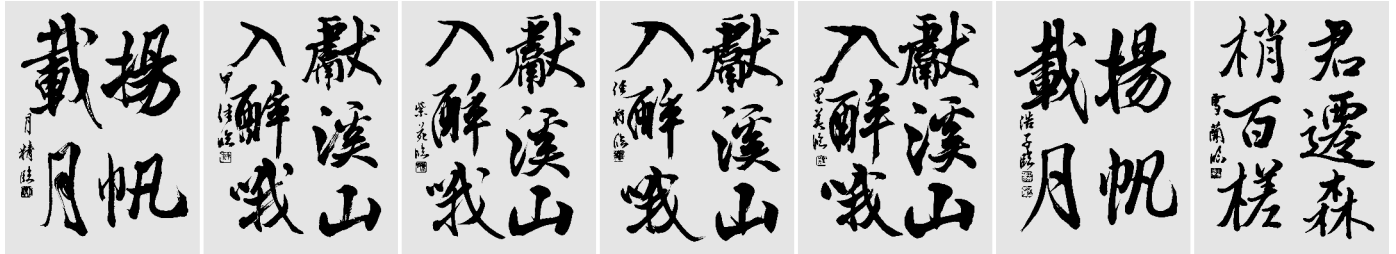 揚帆
載月
月精臨
獻溪山
入醉哦
甲佳臨
獻溪山
入醉哦
紫苑臨
獻溪山
入醉哦
佳臨
獻溪山
入醉哦
里美臨
揚帆
載月
浩子臨
君遷森
梢百槎
雪蘭臨